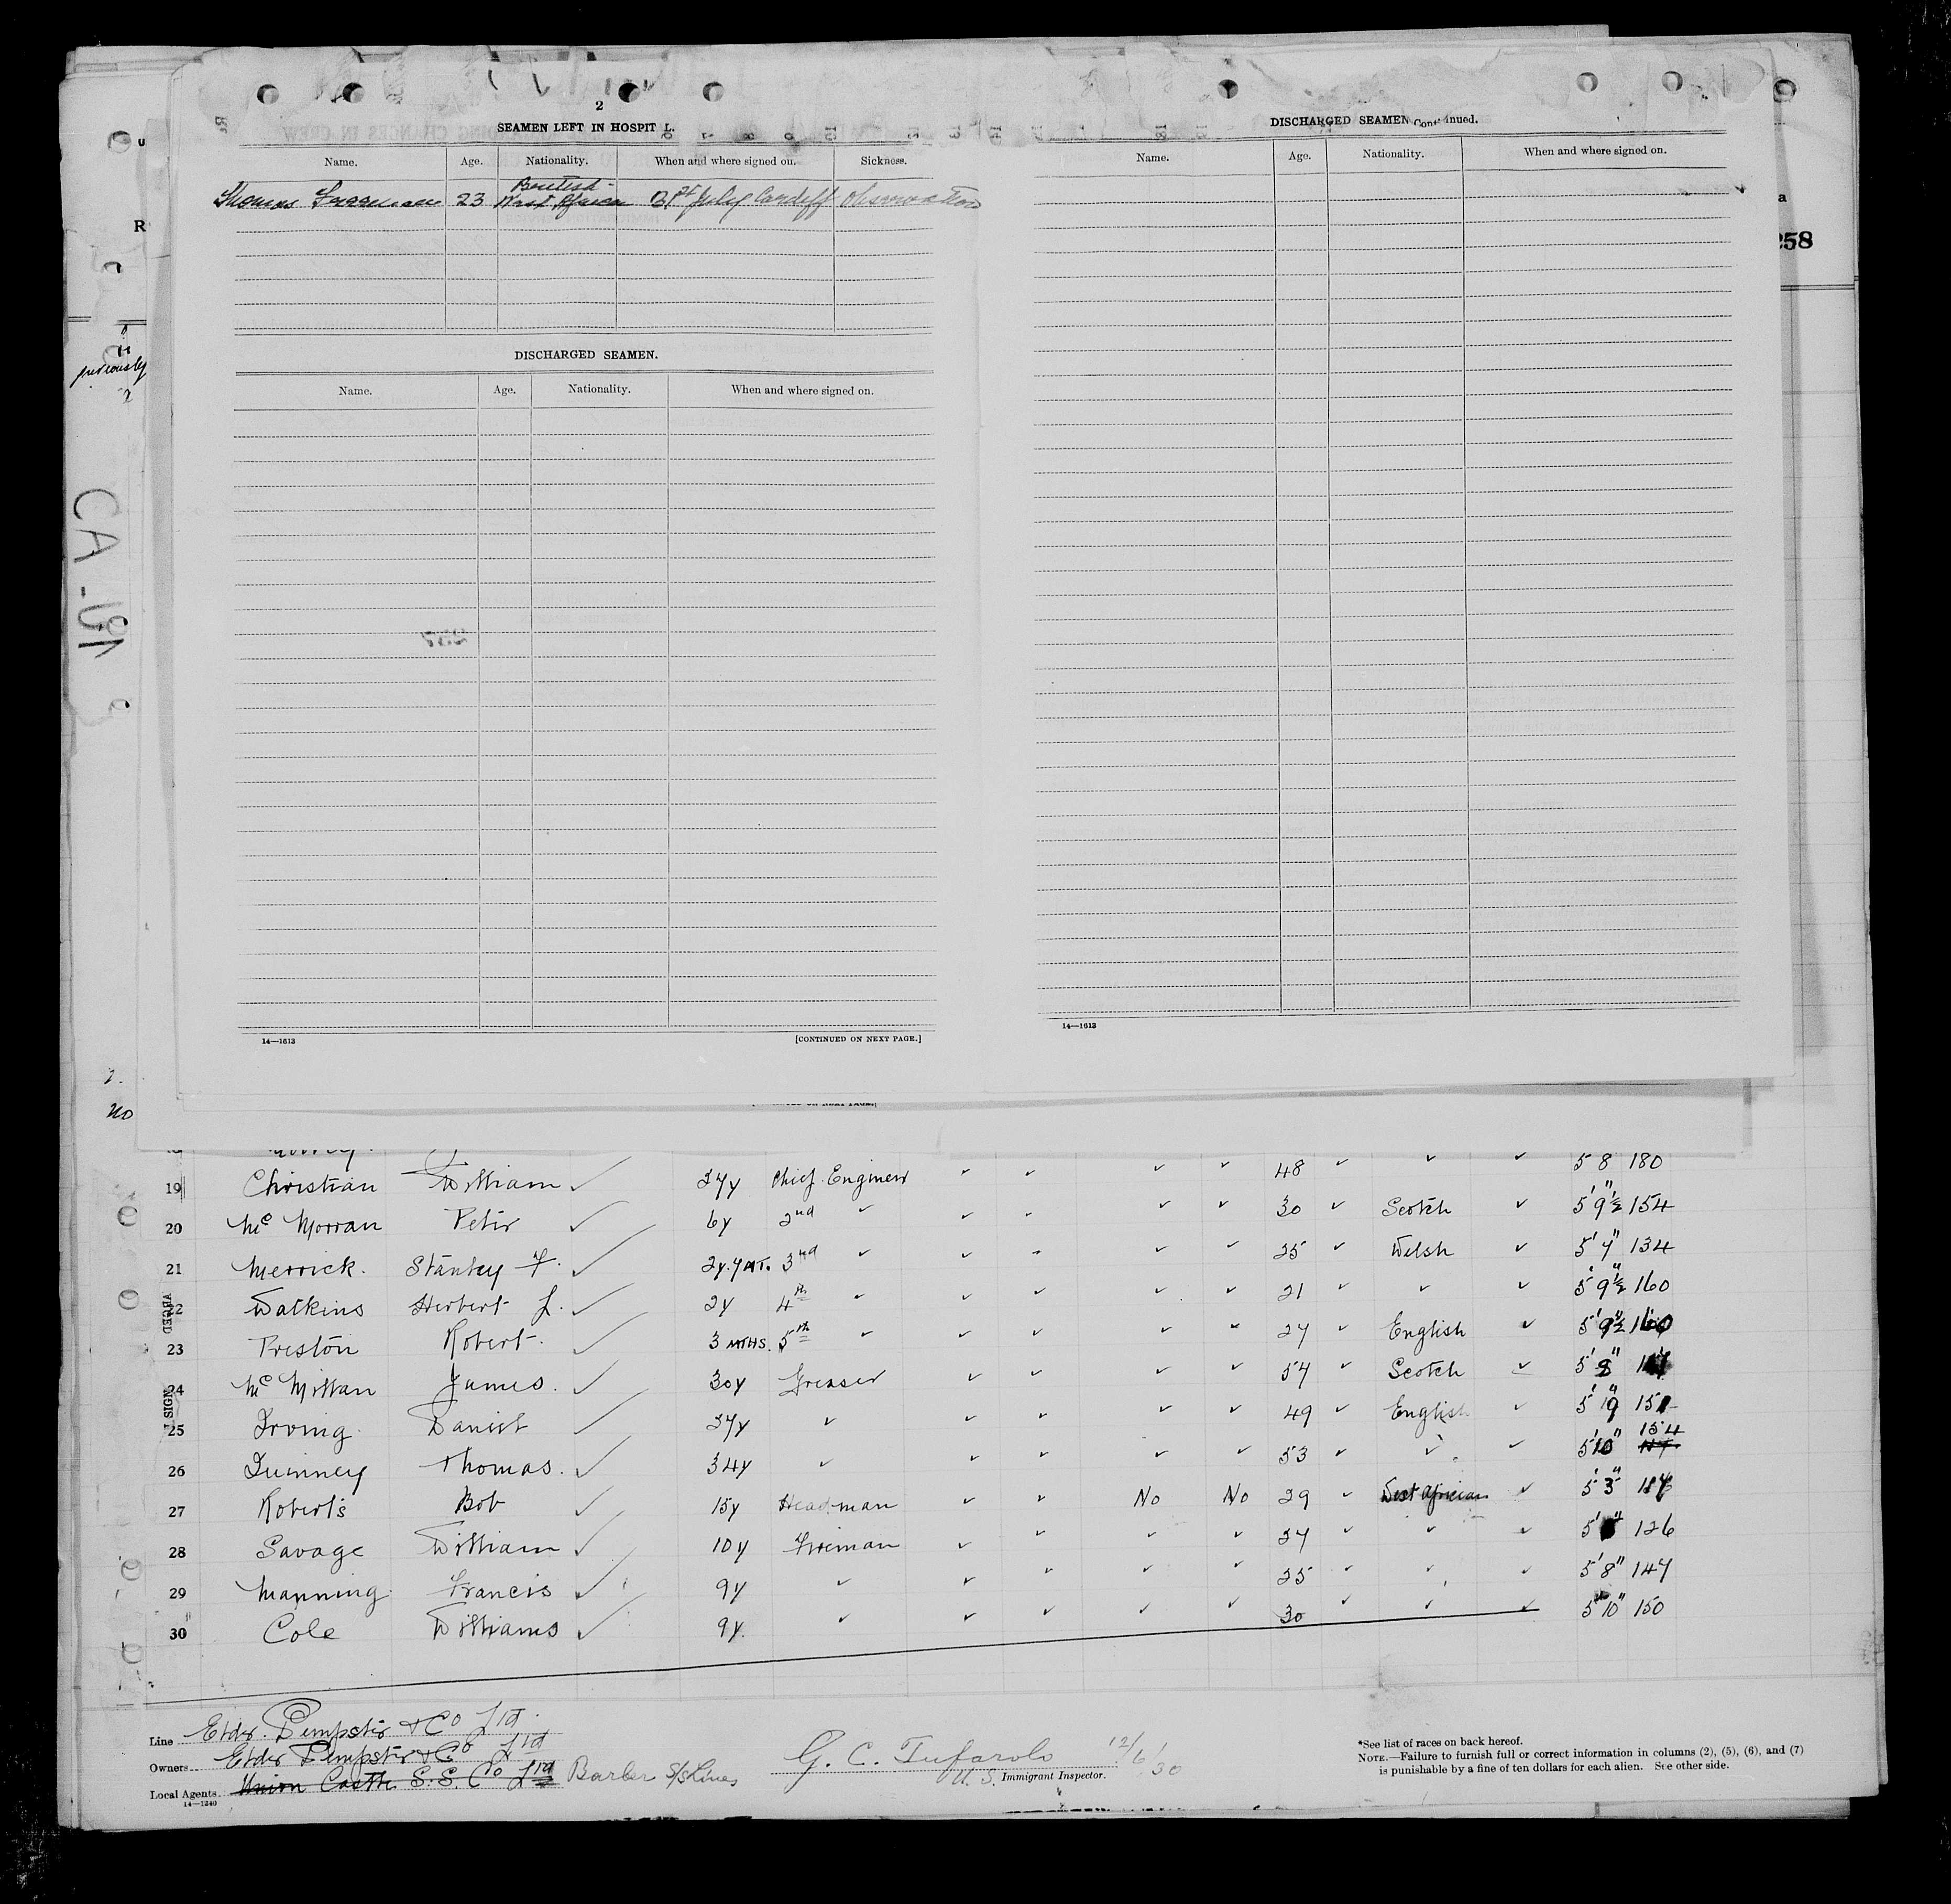 2
SEAMEN LEFT IN HOSPIT L.
Name. Age. Nationality. When and where signed on. Sickness.
Thomas 23 British West Africa 31st July Cardiff Observation
DISCHARGED SEAMEN.
Name. Age. Nationality. When and where signed on.
14—1613 [CONTINUED ON NEXT PAGE.]
DISCHARGED SEAMEN Continued.
Name. Age. Nationality. When and where signed on.
14—1613
258
previously
no
19 Christian William ✓ 27y Chief Engineer ✓ ✓ ✓ ✓ 48 ✓ ✓ ✓ 5 8 180
20 Mc Morran Peter ✓ 6y 2nd ✓ ✓ ✓ ✓ ✓ 30 ✓ Scotch ✓ 5' 9½" 154
21 Merrick. Stanley F. ✓ 3rd ✓ ✓ ✓ ✓ ✓ 25 ✓ Welsh ✓ 5' 7" 134
22 Watkins Herbert L. ✓ 2y 4th ✓ ✓ ✓ ✓ ✓ 21 ✓ ✓ ✓ 5' 9½" 160
23 Preston Robert. ✓ 3 MTHS. 5th ✓ ✓ ✓ ✓ ✓ 27 ✓ English ✓ 5' 9½" 160
24 Mc Millan James. ✓ 30y Greaser ✓ ✓ ✓ ✓ 54 ✓ Scotch ✓ 5' 8"
25 Irving. Daniel ✓ 27y ✓ ✓ ✓ ✓ ✓ 49 ✓ English ✓ 5' 9" 151
26 Thomas. ✓ 34y ✓ ✓ ✓ ✓ 53 ✓ ✓ ✓ 5' 10" 154
27 Roberts Bob ✓ 15y Headman ✓ ✓ No No 29 ✓ West African ✓ 5' 3"
28 Savage William ✓ 10y Fireman ✓ ✓ ✓ ✓ 27 ✓ ✓ ✓ 126
29 Manning Francis ✓ 9y ✓ ✓ ✓ ✓ ✓ 25 ✓ ✓ ✓ 5' 8" 147
30 Cole Williams ✓ 9y. ✓ ✓ ✓ ✓ ✓ 30 ✓ ✓ ✓ 5' 10" 150
Line Elder Dempster & Co Ltd.
Owners Elder Dempster & Co Ltd
Local Agents Union Castle S.S. Co Ltd Barber S/S Lines
14—1240
G. C. Tufarolo 12/6/30
U.S. Immigrant Inspector.
*See list of races on back hereof.
NOTE.—Failure to furnish full or correct information in columns (2), (5), (6), and (7)
is punishable by a fine of ten dollars for each alien. See other side.